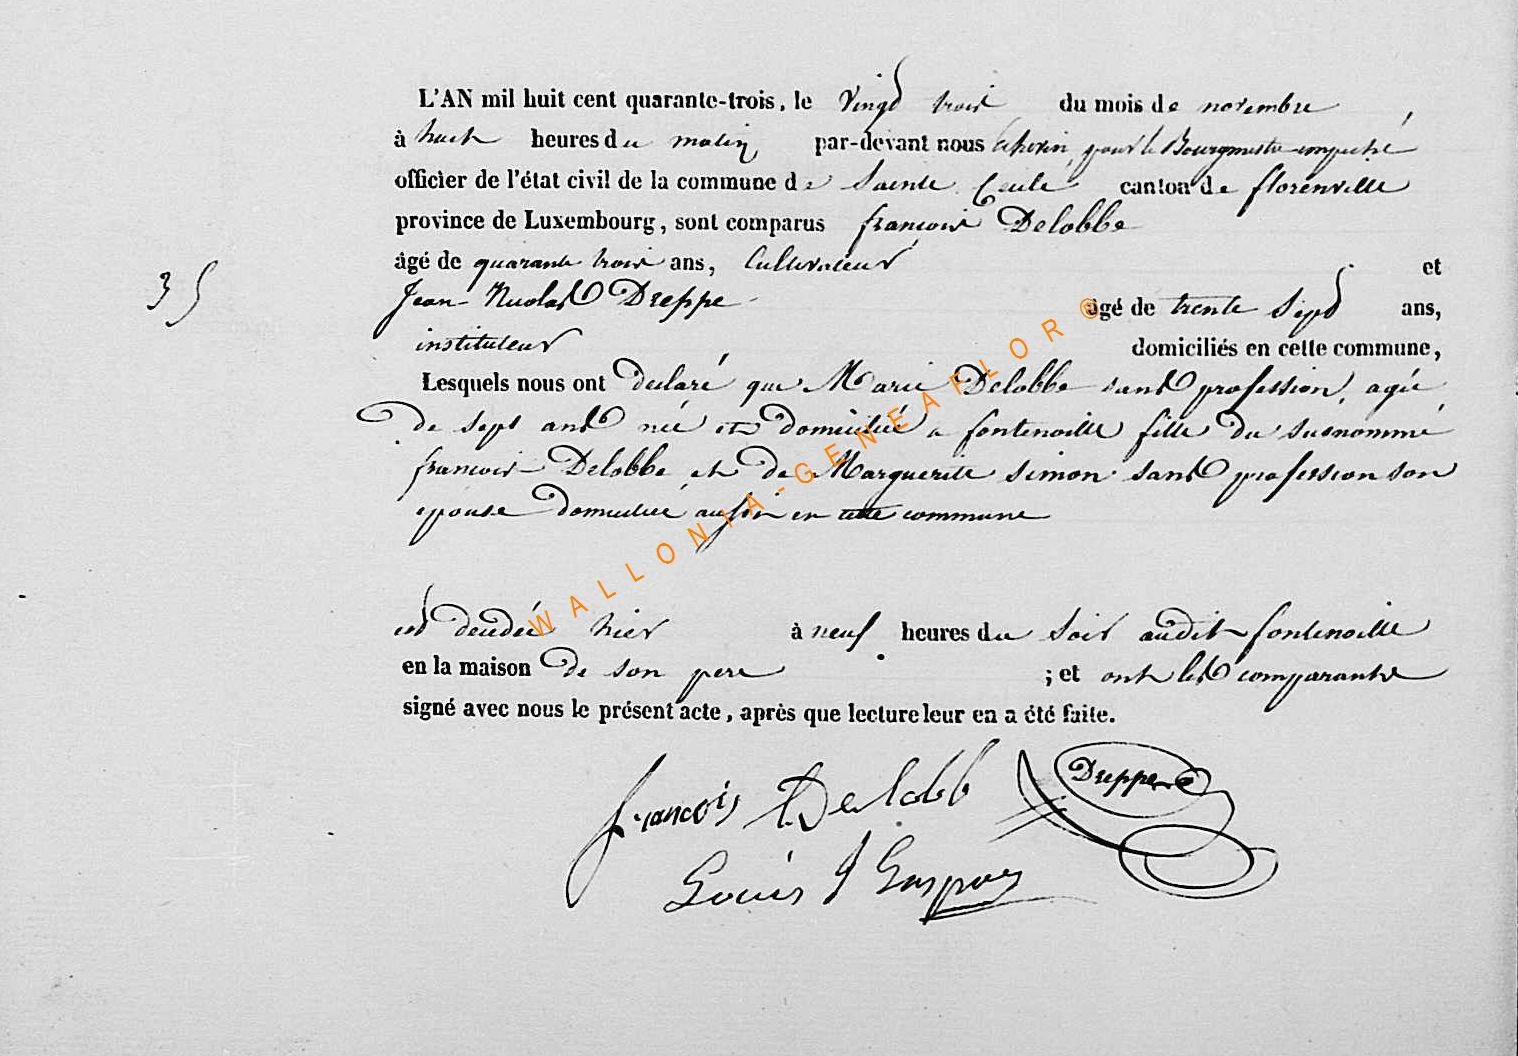 L'AN mil huit cent quarante-trois, le vingt trois du mois de novembre
à huit heures du matin par-devant nous Echevin, pour le Bourgmestre empeché
officier de l'état civil de la commune de Sainte Cecile canton de florenville
province de Luxembourg, sont comparus françois Delobbe
âgé de quarante trois ans, Cultivateur et
35
Jean-Nicolas Dreppe âgé de trente sept ans,
instituteur domiciliés en cette commune,
Lesquels nous ont declaré que Marie Delobbe sans profession, agée
de sept ans née et domiciliée a fontenoille fille du susnommé
francois Delobbe et de Marguerite simon sans profession son
epouse domiciliée aussi en cette commune
est decedée hier à neuf heures du soir audit fontenoille
en la maison de son pere ; et ont les comparants
signé avec nous le présent acte, après que lecture leur en a été faite.
francois Delobb Dreppe
Louis J
WALLONIA-GENEAFLOR ©